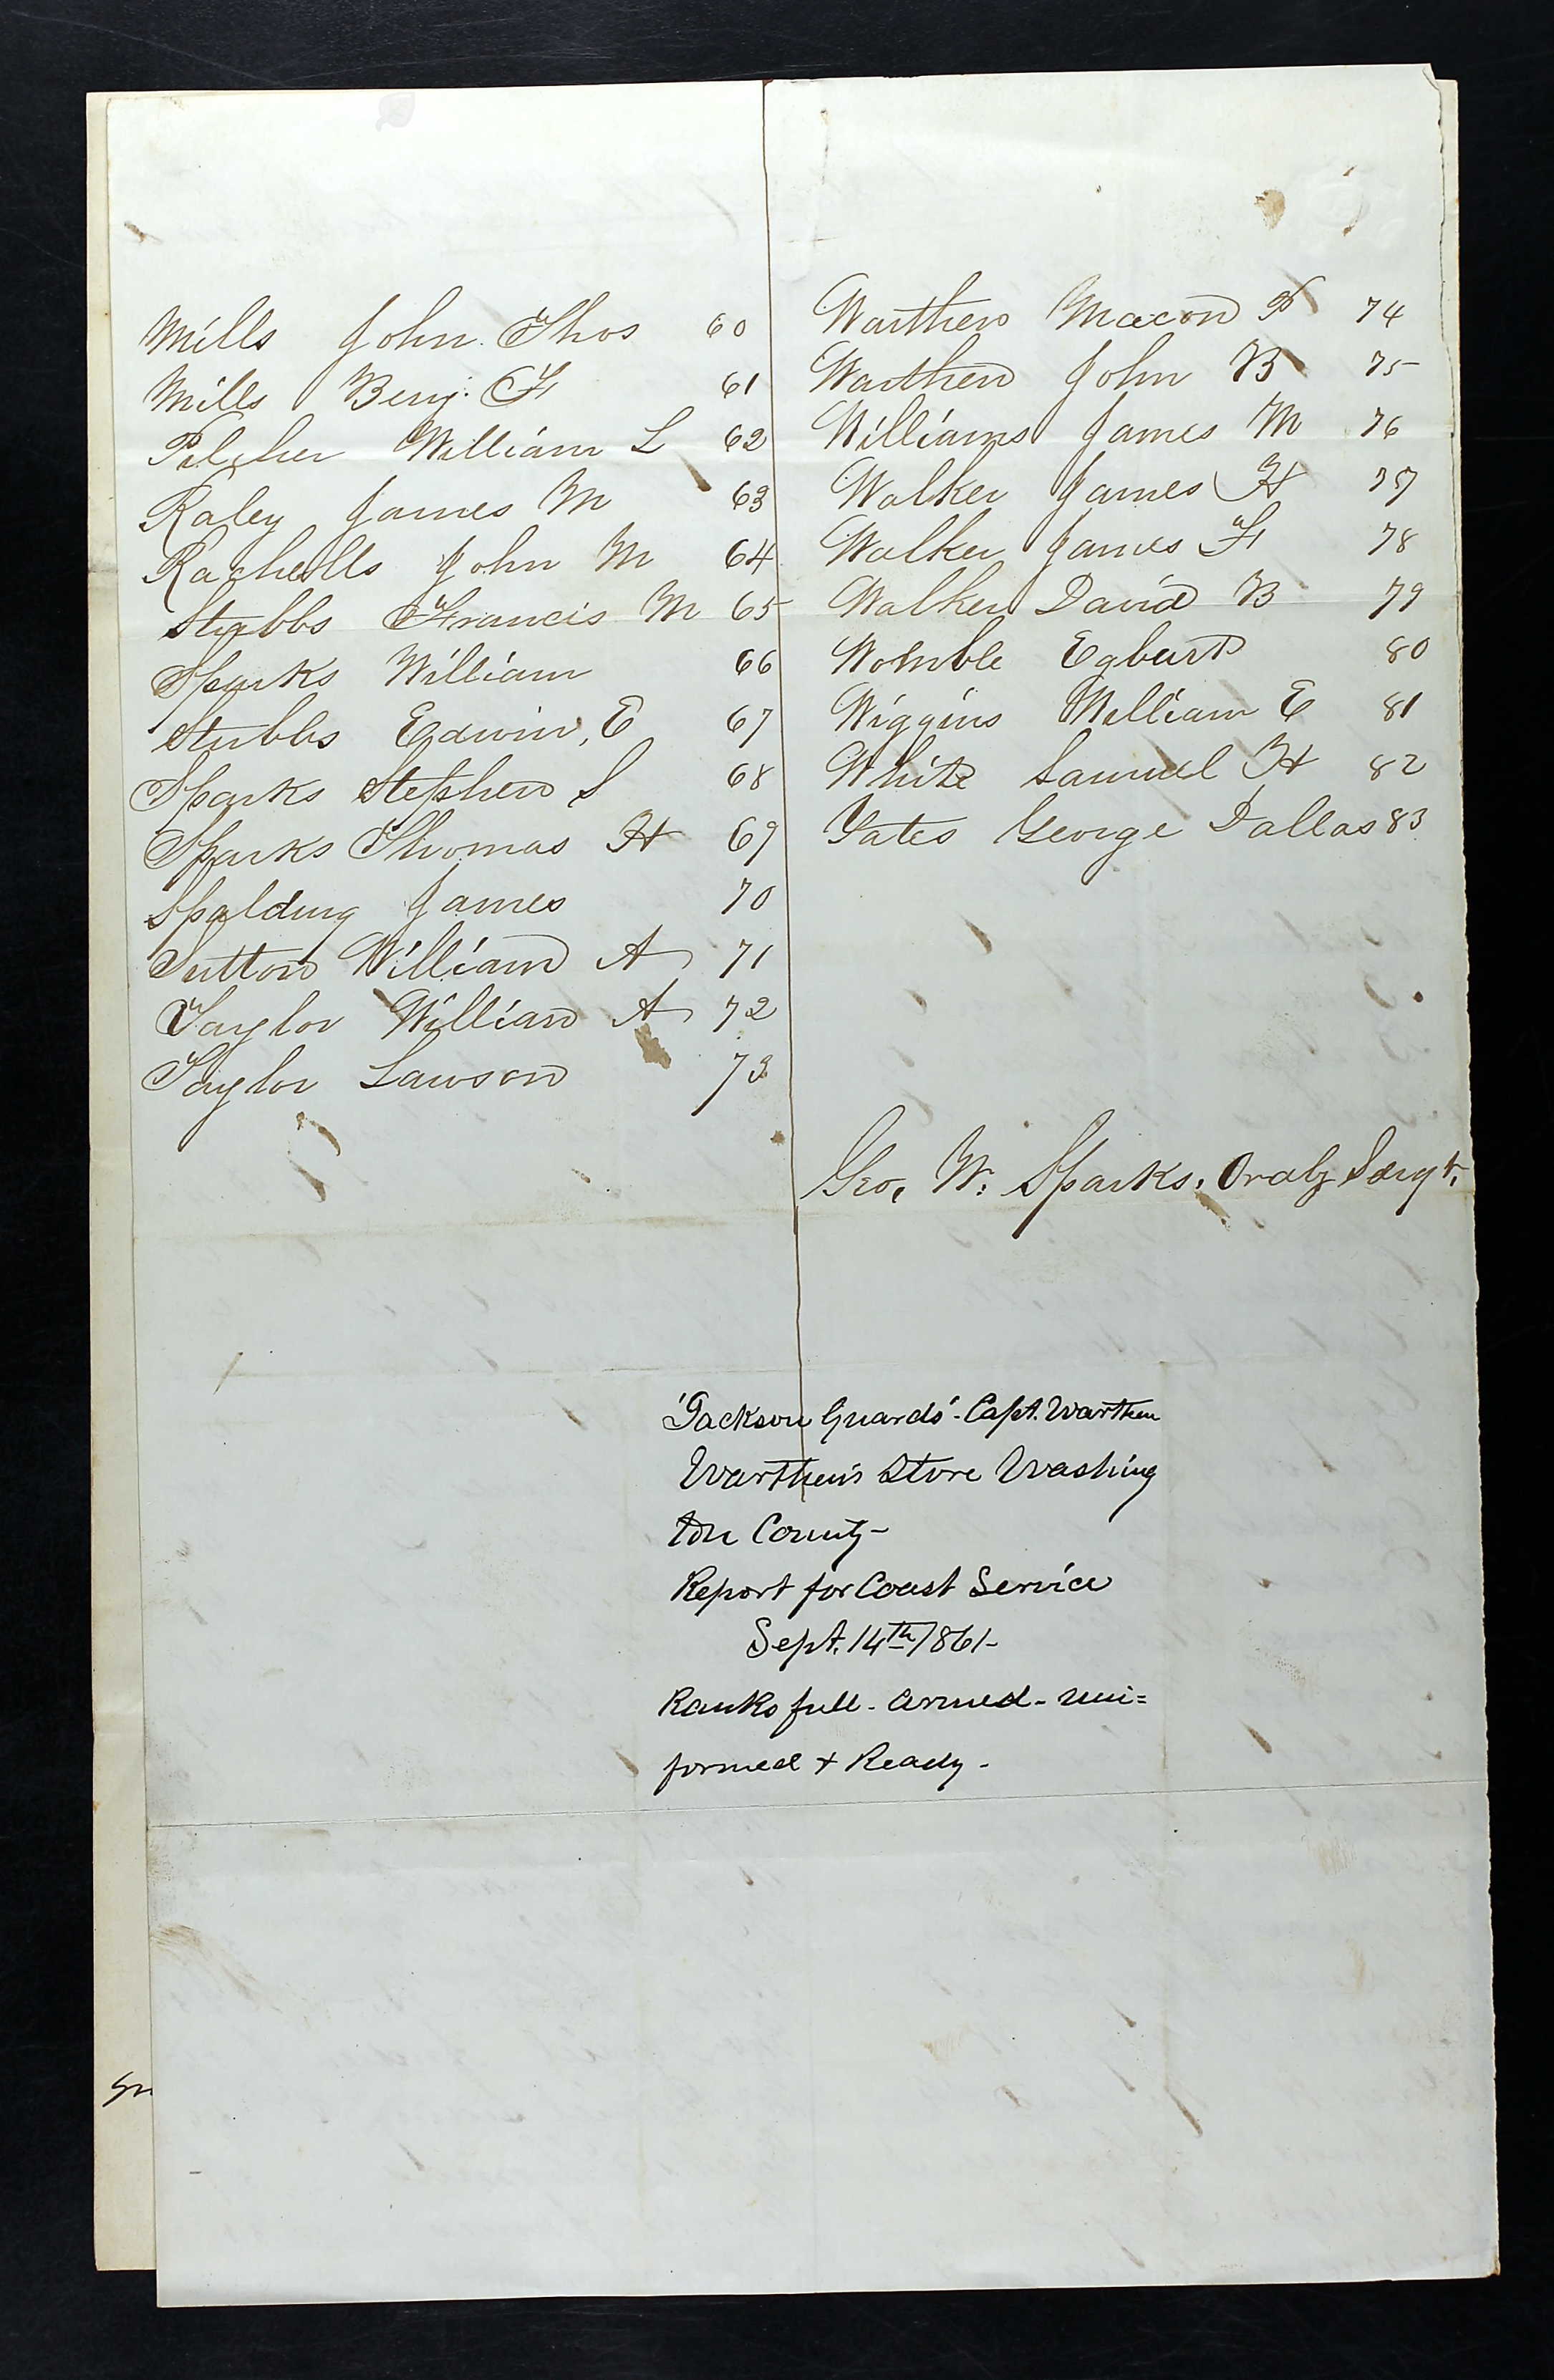 Mills John. Thos 60
Mills Benj. F 61
Pilcher William L 62
Raley James M 63
Rachells John M 64
Stubbs Francis M 65
Sparks William 66
Stubbs Edwin, E 67
Sparks Stephen S 68
Sparks Thomas H 69
Spalding James 70
Sutton William A 71
Taylor William A 72
Taylor Lawson 73
Warthen Macon 74
Warthen John B 75
Williams James M 76
Walker James H 77
Walker James F 78
Walker David B 79
Womble Egbert 80
Wiggins William E 81
White Samuel H 82
Yates George Dallas 83
Geo, W. Sparks. Ordly Sergt.
'Jackson Guards'- Capt. Warthen
Warthen's Store Washing
ton County-
Report for Coast Service
Sept. 14th 1861-
Ranks full - Armed - uni=
formed + Ready -